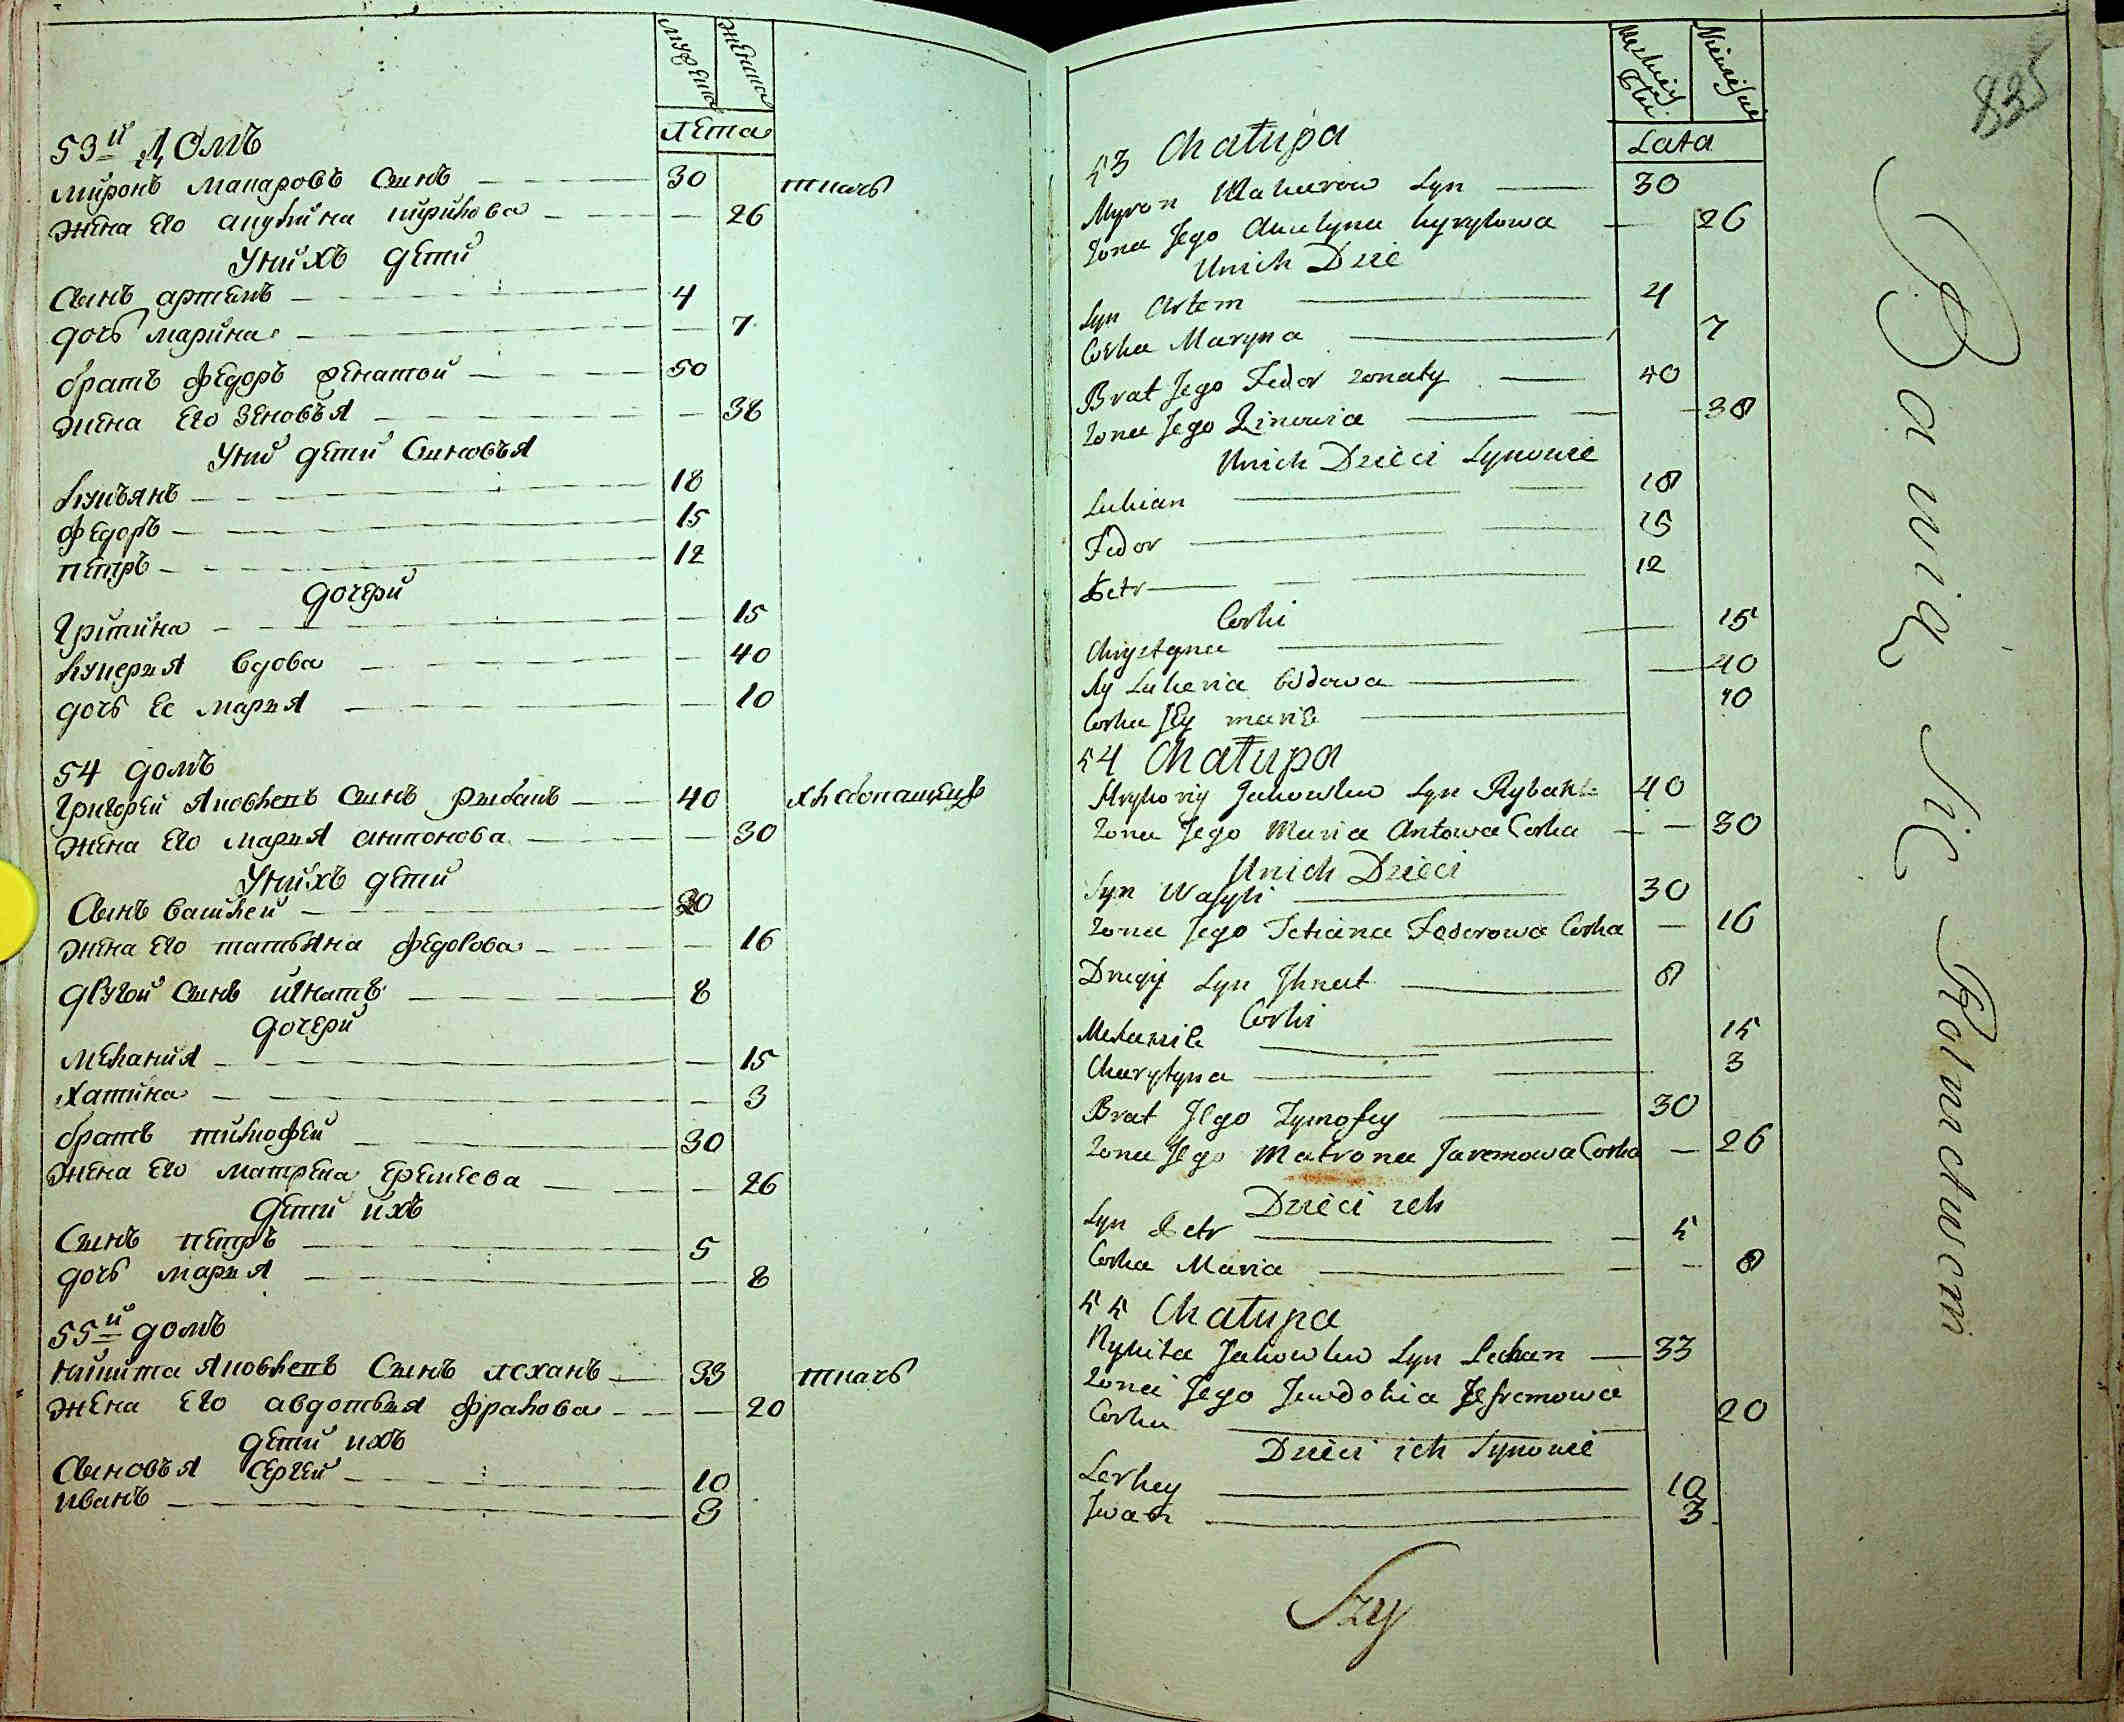 мужеска
женска
лета
53й домъ
миронъ макаровъ сынъ 30 ткачь
жена его акулина кирилова 26
У нихъ дети
сынъ артемъ 4
дочь марина 7
братъ федоръ женатой 50
жена его зеновья 38
У них дети сыновья
лукьянъ 18
федоръ 15
петръ 12
дочери
христина 15
лукерья вдова 40
дочь ее марья 10
54 домъ
григорей яковлевъ сынъ рыбакъ 40 хлебопашецъ
жена его марья антонова 30
У нихъ дети
сынъ василей 20
жена его татьяна федорова 16
другой сынъ игнатъ 8
дочери
мелания 15
хатина 3
братъ тимофей 30
жена его матрена еремеева 26
дети ихъ
сынъ петръ 5
дочь марья 8
55й домъ
никита яковлевъ сынъ леханъ 33 ткачь
жена его авдотья 20
дети ихъ
сыновья сергей 10
иванъ 3
835
Lata
53 Chałupa
Myron Makarow Syn 30
Zona Jego Akulyna kyryłowa 26
Unich Dzie
Syn Artem 4
Corka Maryna 7
Brat Jego Fedor zonaty 40
Zona Jego Zinowia 38
Unich Dzieci Synowie
Lukian 18
Fedor 15
Petr 12
Corki
Chrystyna 15
Lukeria Wdowa 40
Corka Jey maria 10
54 Chałupa
Hryhoriy Jakowlew Syn Rybak 40
Zona Jego Maria Antowa Corka 30
Unich Dzieci
Syn Wasyli 30
Zona Jego Tetiana Fedorowa Corka 16
Drugij Syn Ihnat 8
Corki
Melania 15
Charytyna 3
Brat Jego Tymofey 30
Zona Jego Matrona Jaremowa Corka 26
Dzieci ich
Syn Petr 5
Corka Maria 8
55 Chałupa
Nykita Jakowlew Syn Lechan 33
Zona Jego Jewdokia Jefremowa
Corka 20
Dzieci ich Synowie
Serhey 10
Iwan 3
Szy